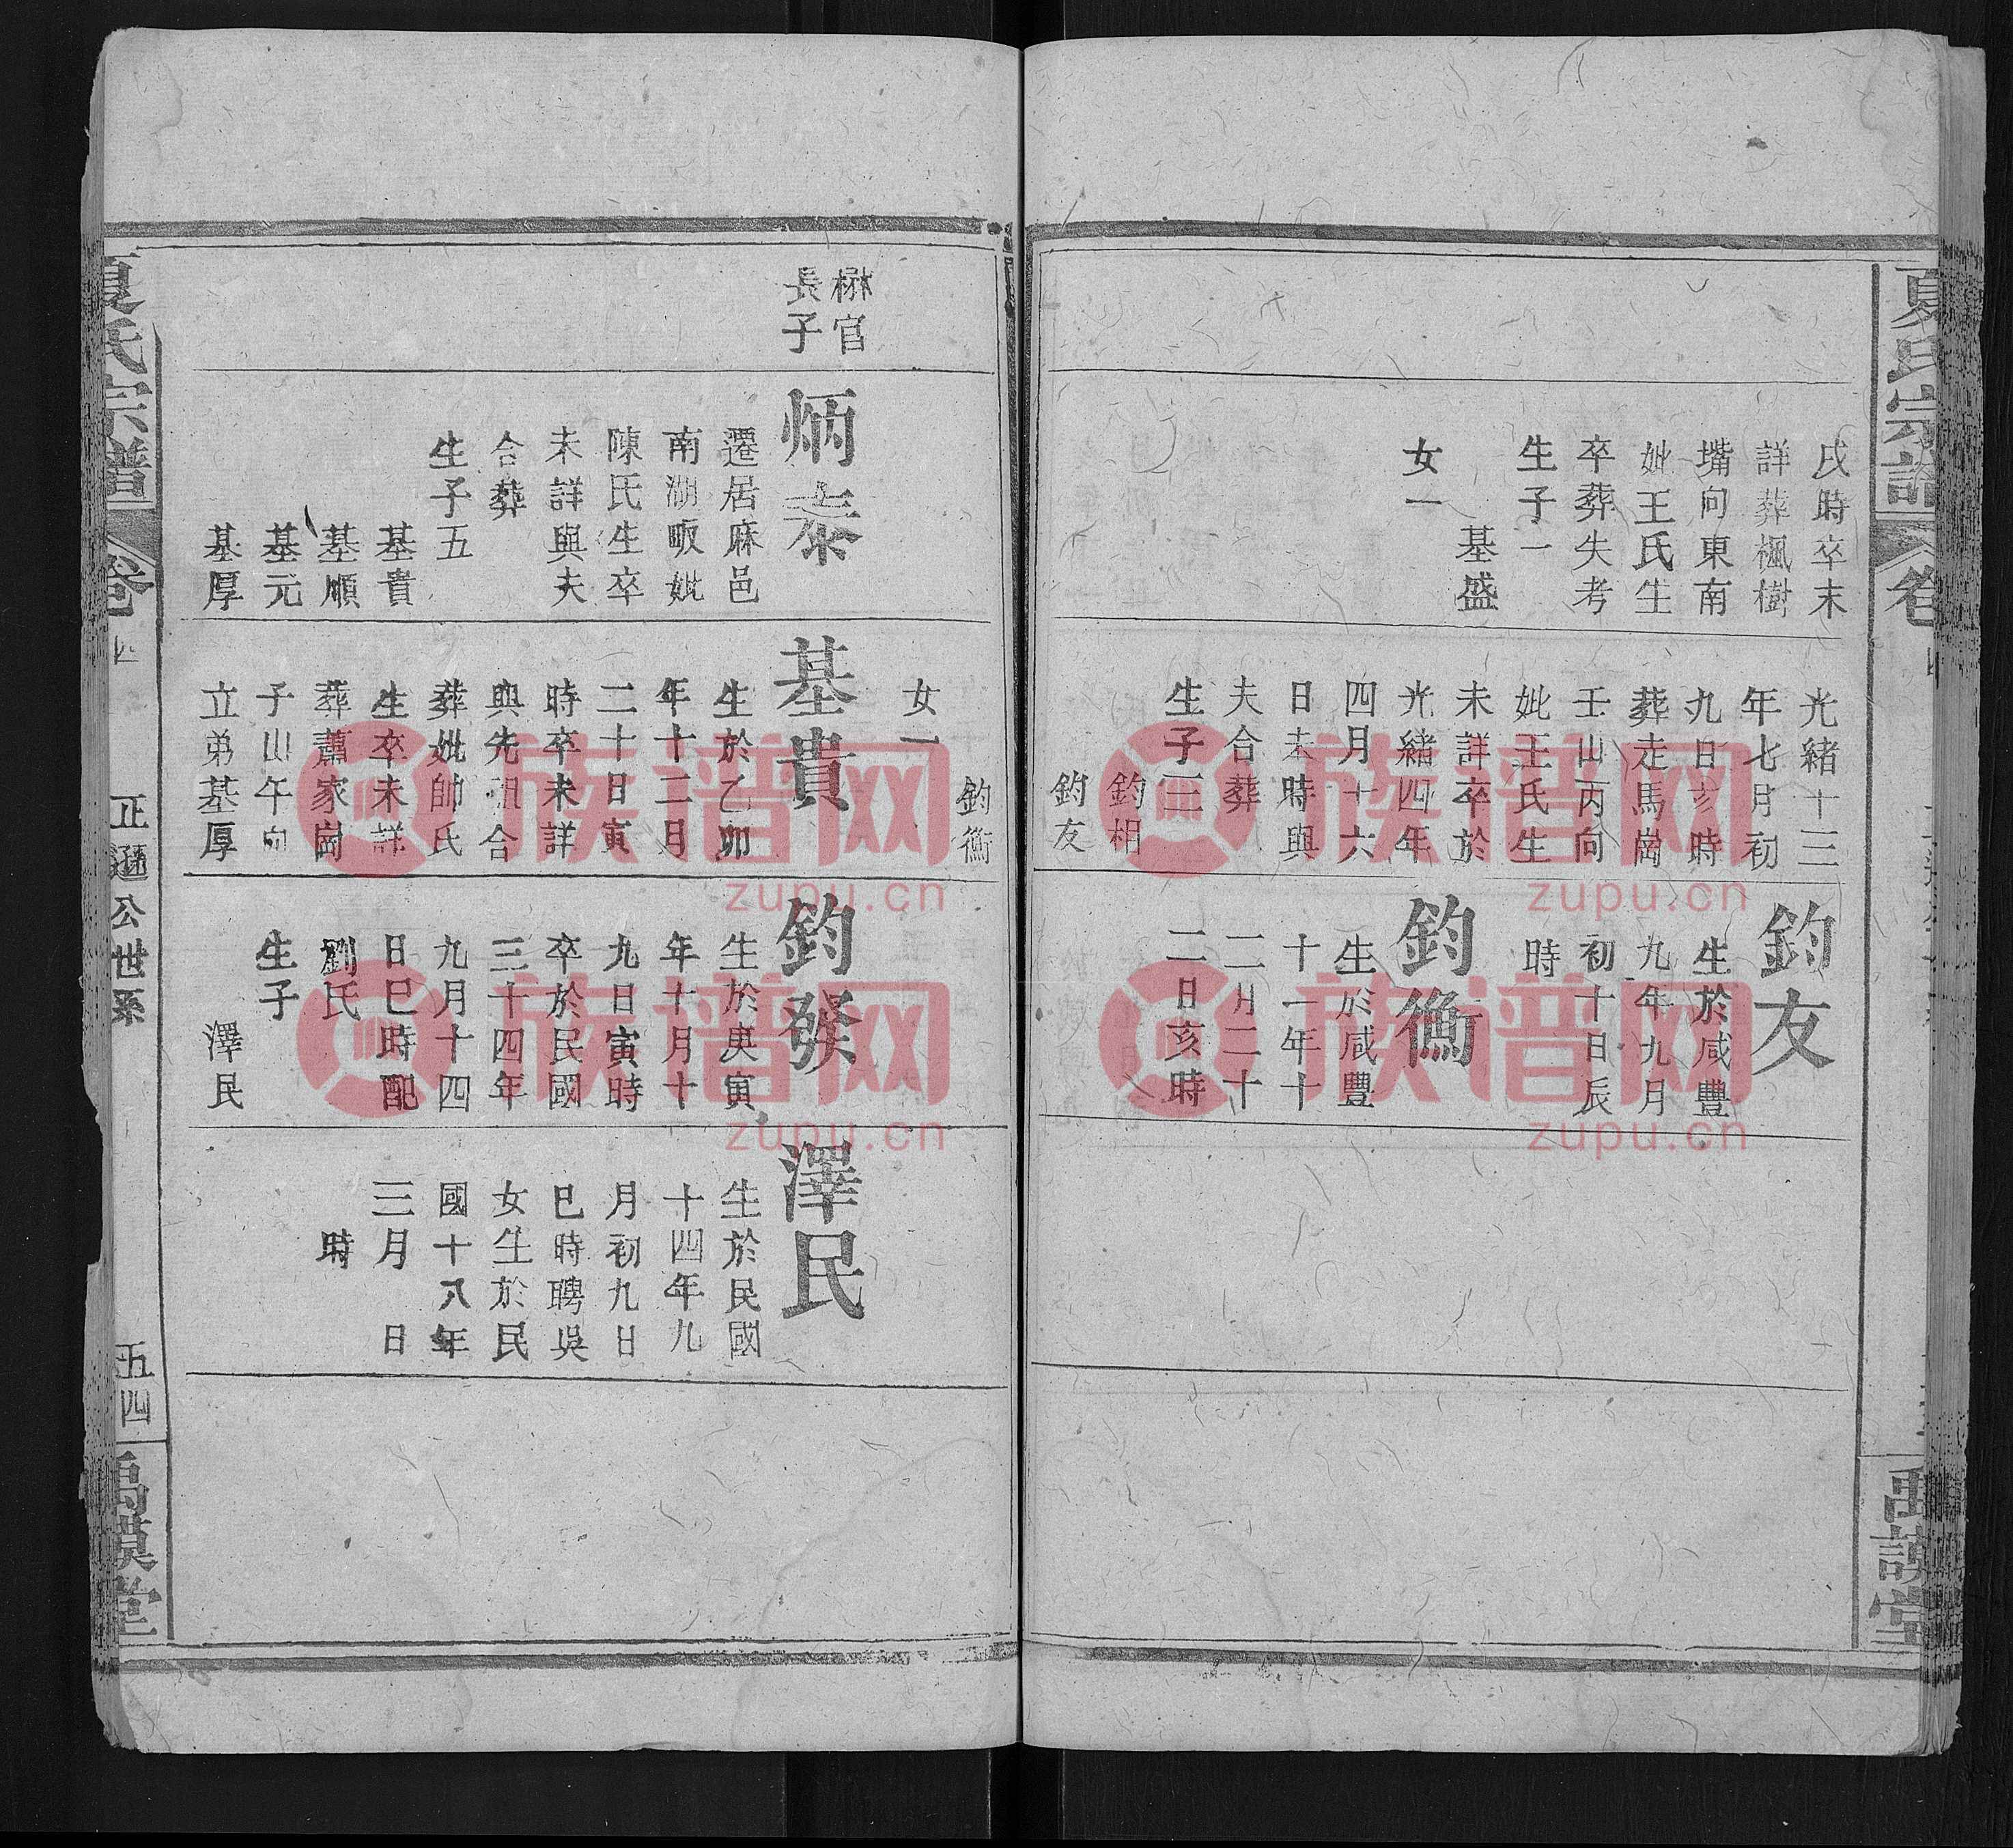 夏氏宗譜
卷
禹謨堂
戌時卒未
詳葬楓樹
嘴向東南
妣王氏生
卒葬失考
生子一
基盛
女一
光緒十三
年七月初
九日亥時
葬走馬崗
壬山丙向
妣王氏生
未詳卒於
光緒四年
四月十六
日未時與
夫合葬
生子三
鈞相
鈞友
鈞友
生於咸豐
九年九月
初十日辰
時
鈞衡
生於咸豐
十一年十
二月二十
二日亥時
鈞衡
女一
楙官
長子
炳泰
遷居麻邑
南湖畈妣
陳氏生卒
未詳與夫
合葬
生子五
基貴
基順
基元
基厚
基貴
生於乙卯
年十二月
二十日寅
時卒未詳
與先祖合
葬妣帥氏
生卒未詳
葬蕭家崗
子山午向
立弟基厚
鈞發
生於庚寅
年十月十
九日寅時
卒於民國
三十四年
九月十四
日巳時配
劉氏
生子
澤民
澤民
生於民國
十四年九
月初九日
巳時聘吳
女生於民
國十八年
三月 日
時
夏氏宗譜
卷四
正遜公世系
五四
禹謨堂
族谱网
zupu.cn
族谱网
zupu.cn
族谱网
zupu.cn
族谱网
zupu.cn